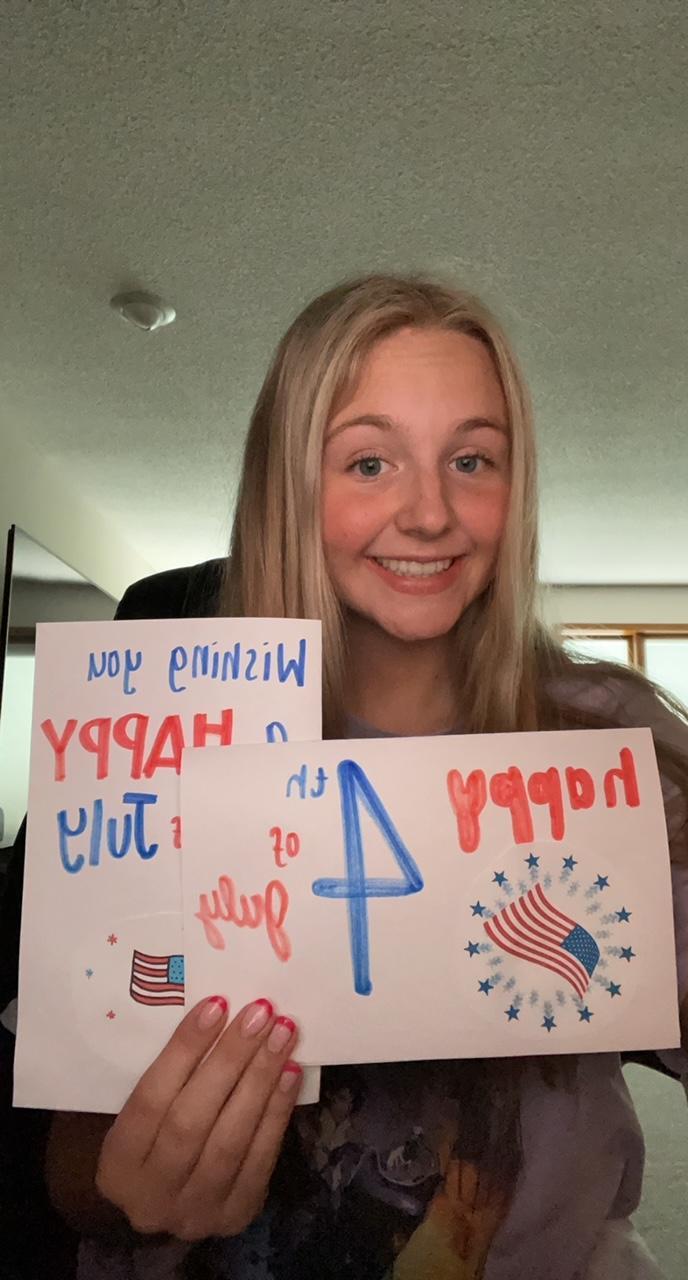 Wishing you
a HAPPY
July
happy
4th
of
July